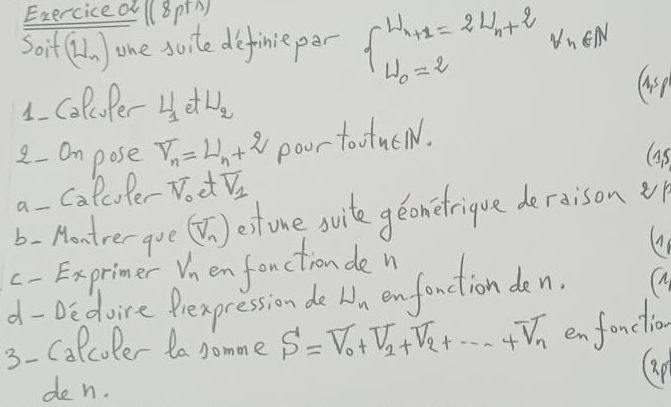 Exercice 02 (8pts)
Soit (Un) une suite définie par { Un+1 = 2Un + 2 ∀n∈N
U0 = 2
1- Calculer U1 et U2 (1,5p
2- On pose Vn = Un + 2 pour tout n∈IN.
a- Calculer V0 et V1 (1,5
b- Montrer que (Vn) est une suite géométrique de raison 2
c- Exprimer Vn en fonction de n
d- Déduire l'expression de Un en fonction de n.
3- Calculer la somme S = V0 + V1 + V2 + .... + Vn en fonction
de n. (2p